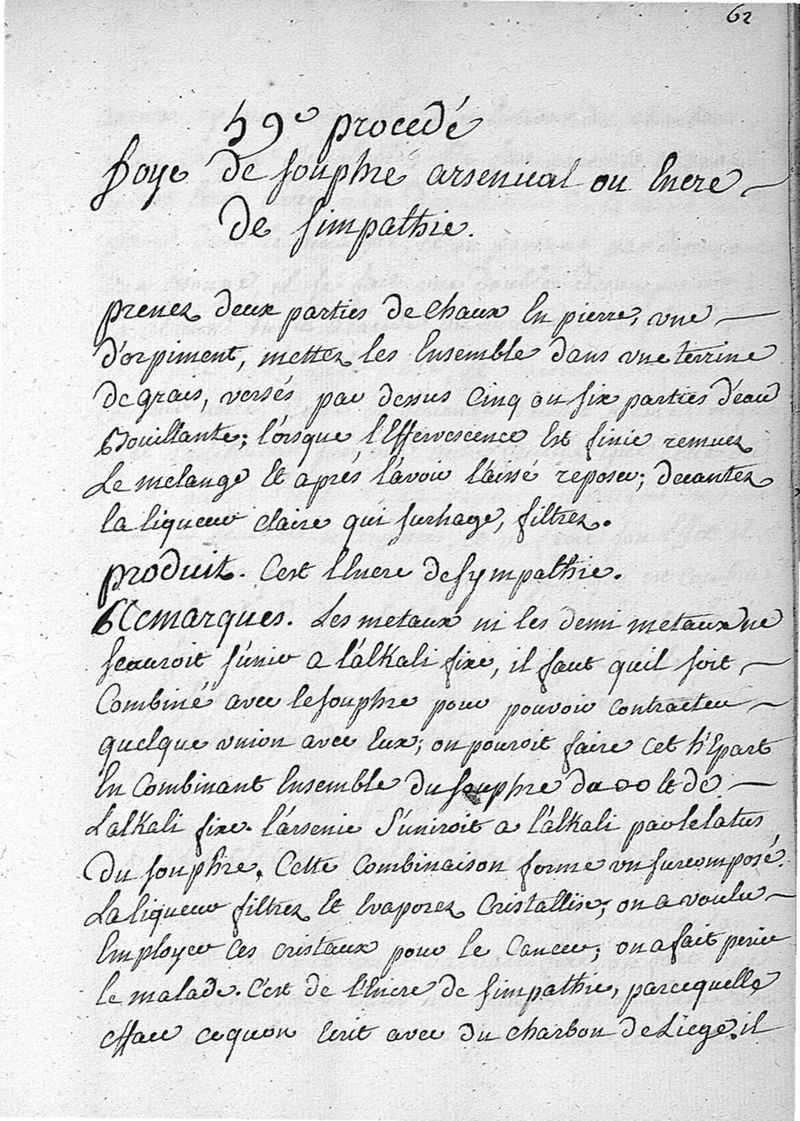 62
59e procedé
foye de souphre arsenical ou Encre
de simpathie.
prenez deux parties de chaux En pierre, vne
d'orpiment, mettez les Ensemble dans vne terrine
de grais, versés par dessus Cinq ou six parties d'eau
Bouillante; l'orsque l'Effervescence Est finie remuez
Le melange Et aprés l'avoir l'aissé reposer; decantez
la liqueur claire qui surnage, filtrez.
produit. C'est l'Encre de sympathie.
Remarques. Les metaux ni les demi metaux ne
scauroit s'unir a l'alkali fixe, il faut quil soit
Combiné avec le souphre pour pouvoir contracter
quelque vnion avec Eux; on pouroit faire cet h'Epart
En Combinant Ensemble du souphre da oo Et de
L'alkali fixe. l'arsenic s'uniroit a l'alkali par le latus
du souphre. Cette Combinaison forme vn surcomposé.
La liqueur filtrez Et Evaporez Cristallise; on a voulu
Employer ces cristaux pour le Cancer; on a fait perir
le malade. C'est de l'Encre de simpathie, parcequelle
efface cequon Ecrit avec du charbon de Liege. il